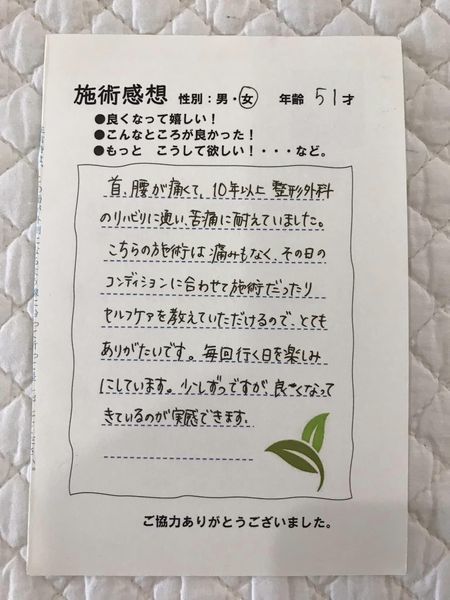 施術感想 性別：男・女 年齢 51才
●良くなって嬉しい！
●こんなところが良かった！
●もっと こうして欲しい！・・・など。
首、腰が痛くて、10年以上 整形外科
のリハビリに通い、苦痛に耐えていました。
こちらの施術は痛みもなく、その日の
コンディションに合わせて施術だったり
セルフケアを教えていただけるので、とても
ありがたいです。毎回行く日を楽しみ
にしています。少しずつですが、良くなって
きているのが実感できます。
ご協力ありがとうございました。